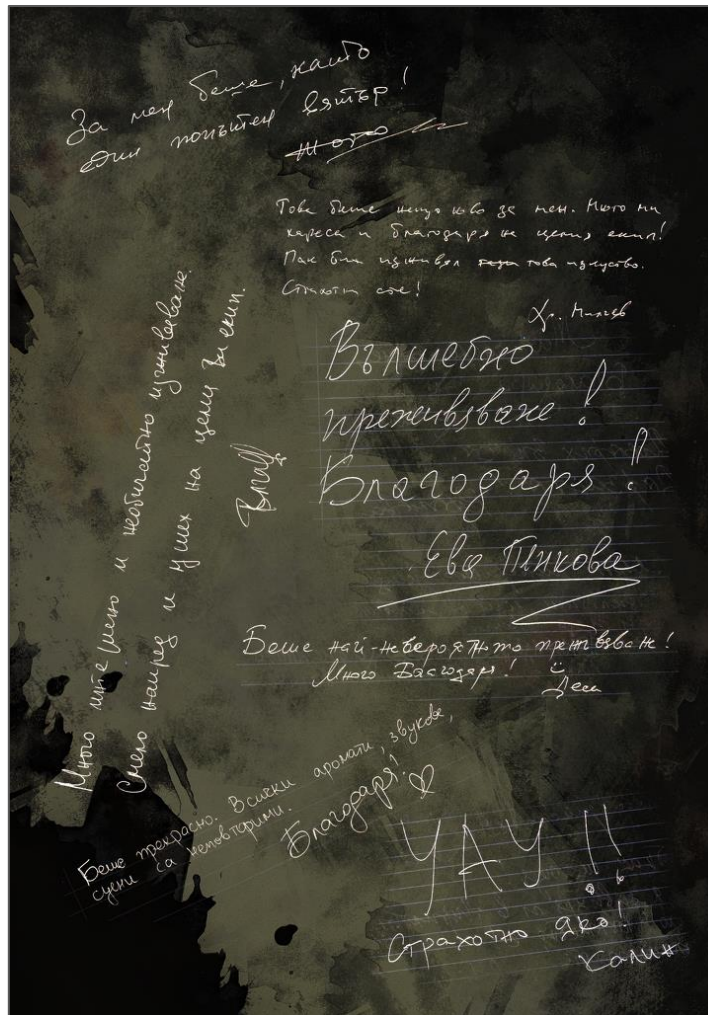 За мен беше, като
един попътен вятър!
Това беше нещо ново за мен. Много ми
хареса и благодаря на целия екип!
Пак бих изживял това изкуство.
Страхотни сте!
Вълшебно
преживяване!
Благодаря!
Ева Пикова
Много интересно и необичайно изживяване.
Смело напред и успех на целия Ви екип.
Беше най-невероятното преживяване!
Много Басгодаря!
Деси
Беше прекрасно. Всички аромати, звукове,
сцени са неповторими.
Благодаря!
УАУ!!
Страхотно яко!
Калин